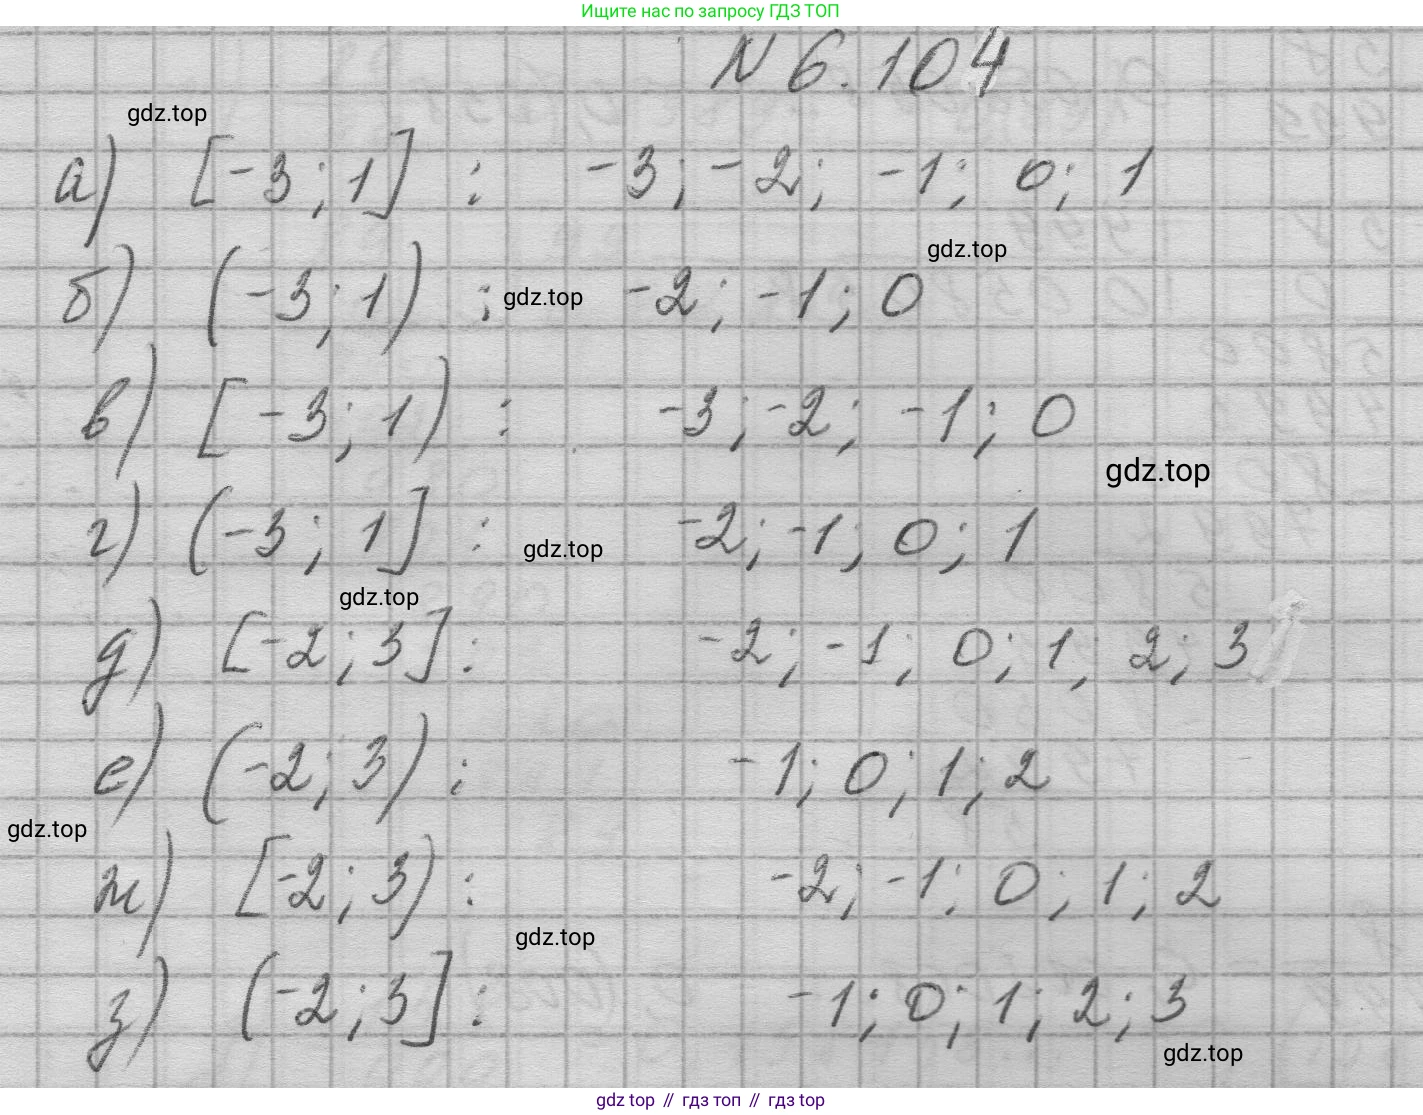 Ищите нас по запросу ГДЗ ТОП
N 6.104
gdz.top
а) [-3; 1] : -3; -2; -1; 0; 1
gdz.top
б) (-3; 1) : gdz.top -2; -1; 0
в) [-3; 1) : -3; -2; -1; 0
gdz.top
г) (-3; 1] : gdz.top -2; -1; 0; 1
gdz.top
д) [-2; 3] : -2; -1; 0; 1, 2; 3
е) (-2; 3) : -1; 0; 1; 2
gdz.top
ж) [-2; 3) : -2; -1; 0; 1; 2
gdz.top
з) (-2; 3] : -1; 0; 1; 2; 3
gdz.top
gdz top // гдз топ // гдз top